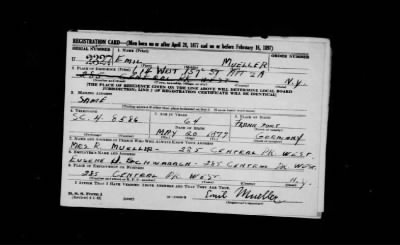 REGISTRATION CARD—(Men born on or after April 28, 1877 and on or before February 16, 1897)
SERIAL NUMBER 1. NAME (Print) ORDER NUMBER
U 2327 EMIL MUELLER
2. PLACE OF RESIDENCE (Print)
614 WEST 157 ST APT 2A
285 CENTRAL PK WEST N.Y.
[THE PLACE OF RESIDENCE GIVEN ON THE LINE ABOVE WILL DETERMINE LOCAL BOARD
JURISDICTION; LINE 2 OF REGISTRATION CERTIFICATE WILL BE IDENTICAL]
3. MAILING ADDRESS
SAME
4. TELEPHONE 5. AGE IN YEARS 6. PLACE OF BIRTH
64
SC. 4-8586 DATE OF BIRTH
MAY 20 1877 GERMANY
7. NAME AND ADDRESS OF PERSON WHO WILL ALWAYS KNOW YOUR ADDRESS
MRS R. MUELLER - 285 CENTRAL PK WEST.
8. EMPLOYER'S NAME AND ADDRESS
EUGENE - 285 CENTRAL PK WEST
9. PLACE OF EMPLOYMENT OR BUSINESS
285 CENTRAL PK WEST N.Y.
I AFFIRM THAT I HAVE VERIFIED ABOVE ANSWERS AND THAT THEY ARE TRUE.
D. S. S. Form 1
Emil Mueller